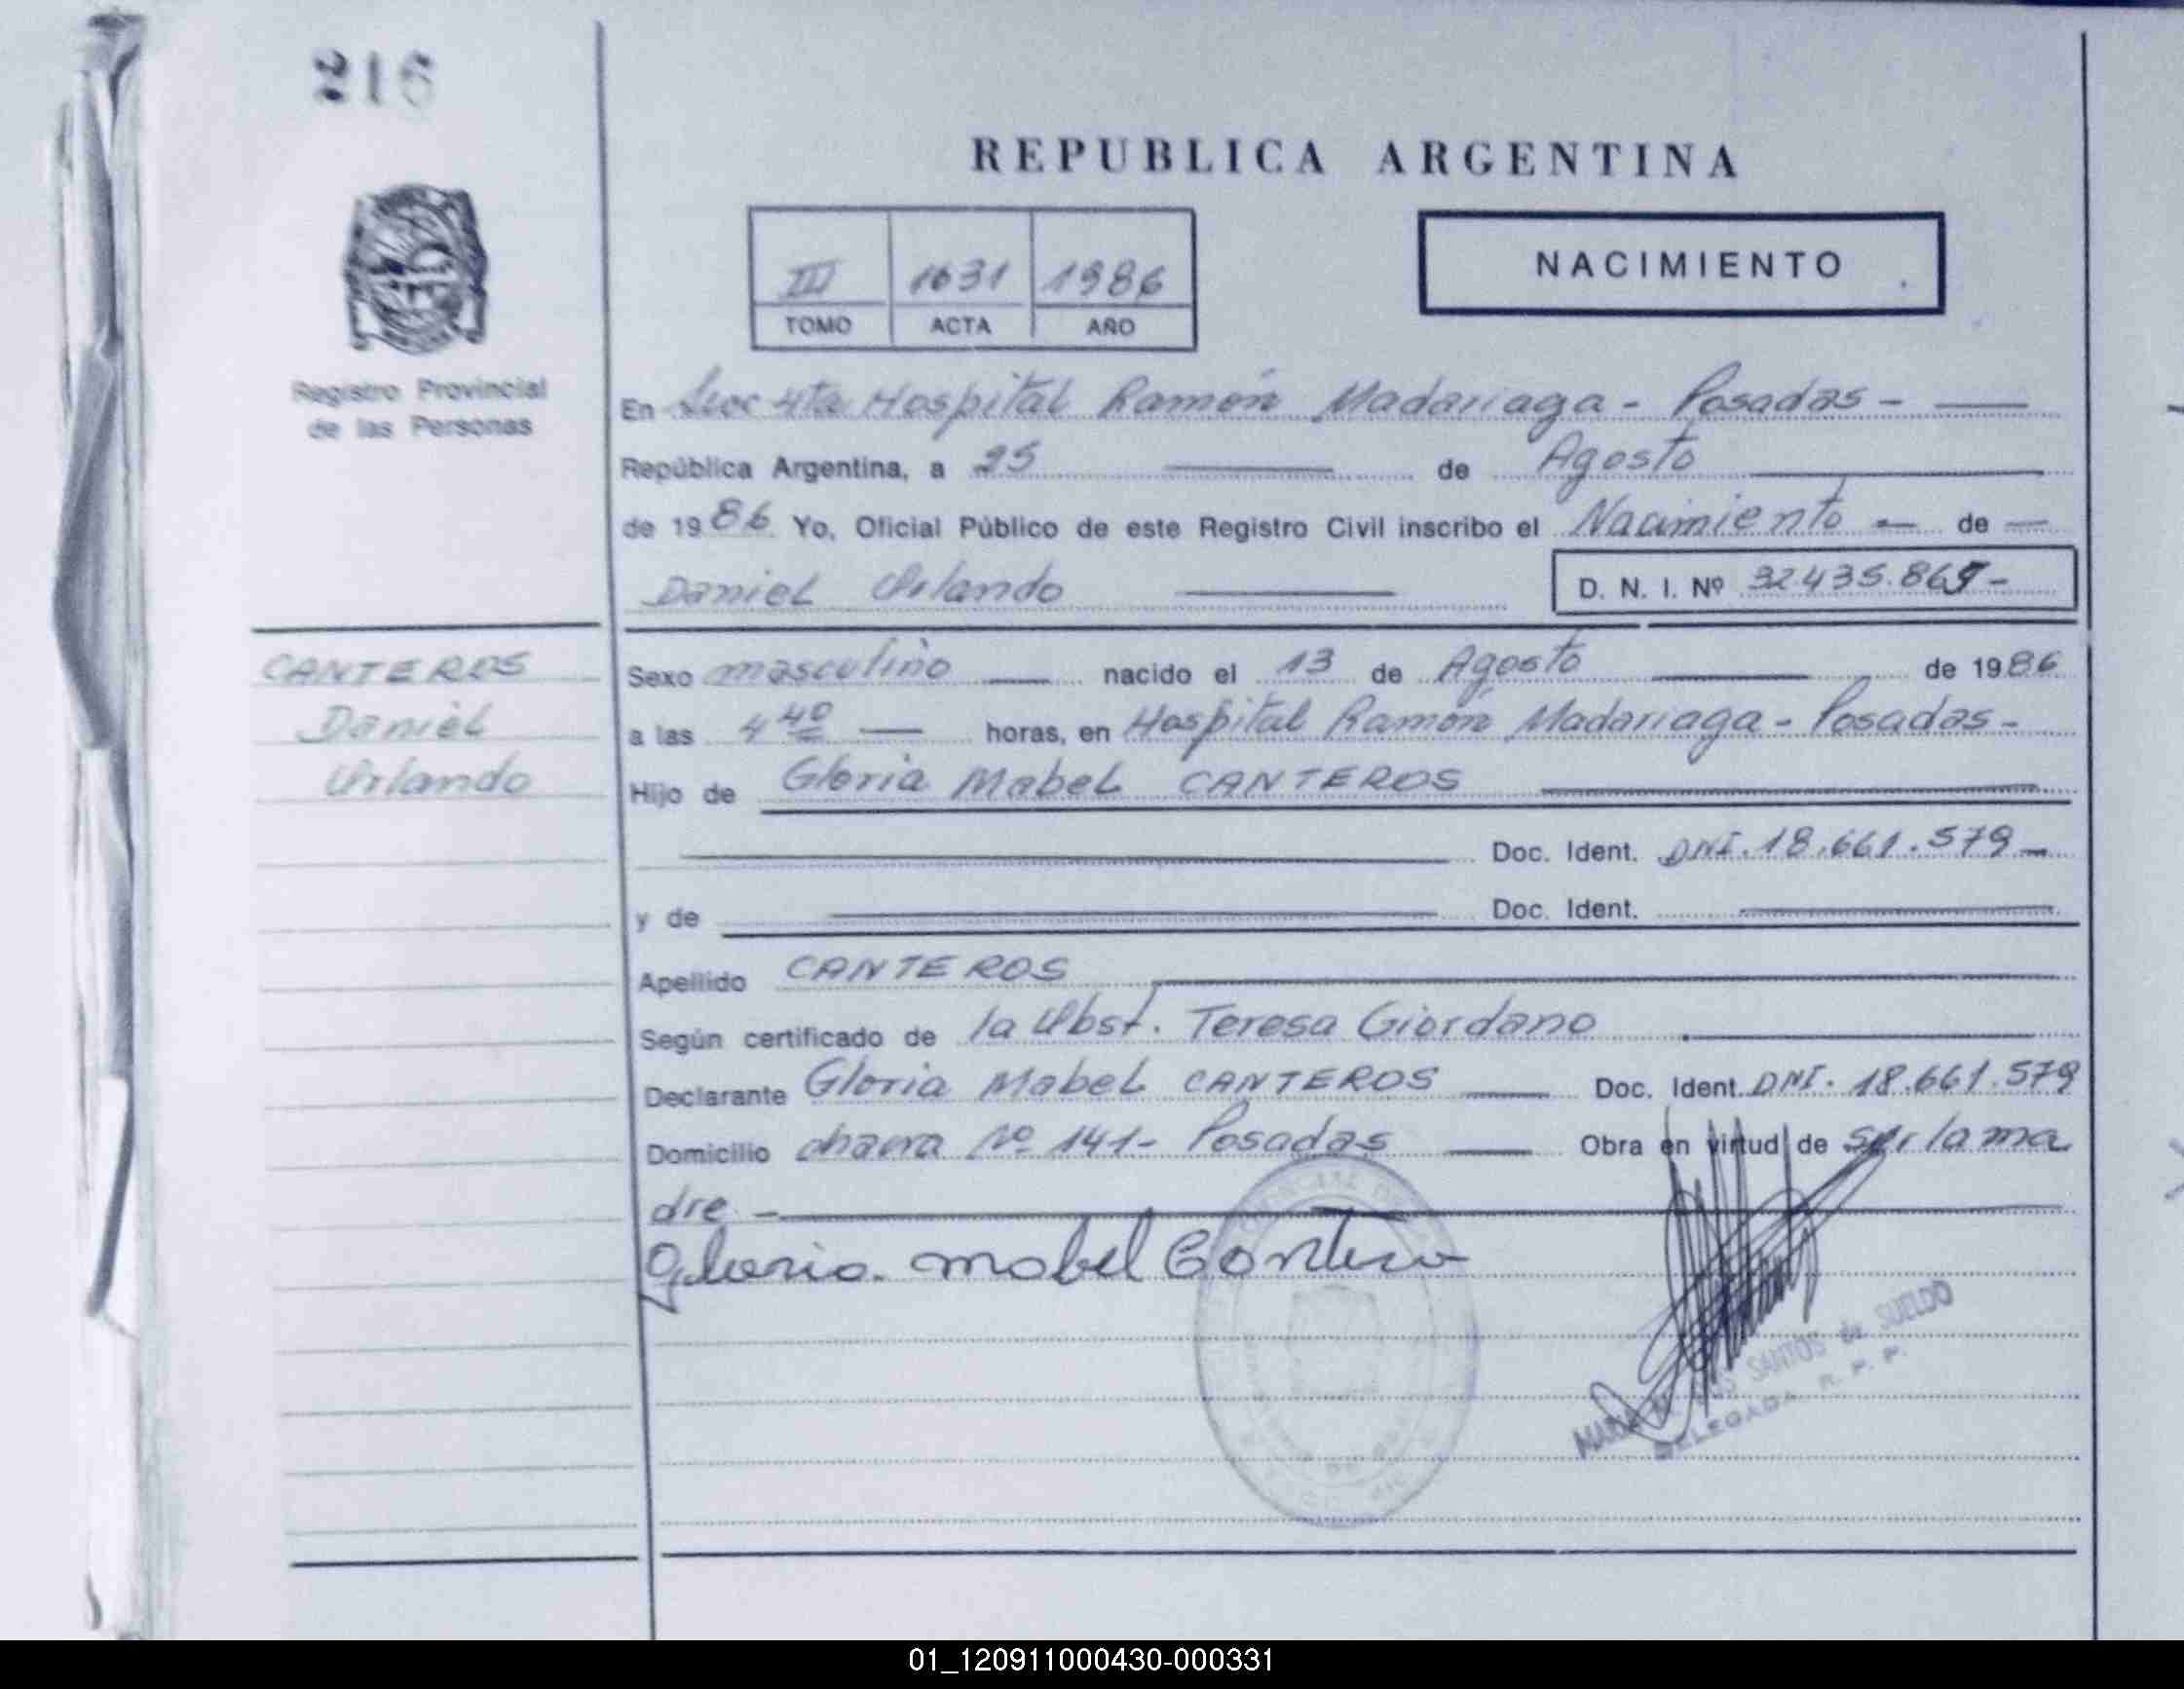 216
REPUBLICA ARGENTINA
III 1631 1986
TOMO ACTA AÑO
NACIMIENTO
Registro Provincial
de las Personas
En Secc 4ta Hospital Ramón Madariaga - Posadas -
República Argentina, a 25 de Agosto
de 1986 Yo, Oficial Público de este Registro Civil inscribo el Nacimiento - de
Daniel Orlando D. N. I. Nº 32.435.865-
CANTEROS
Daniel
Orlando
Sexo masculino nacido el 13 de Agosto de 1986
a las 4 40 horas, en Hospital Ramón Madariaga - Posadas -
Hijo de Gloria Mabel CANTEROS
Doc. Ident. DNI. 18.661.579
y de Doc. Ident.
Apellido CANTEROS
Según certificado de la Obst. Teresa Giordano
Declarante Gloria Mabel CANTEROS Doc. Ident. DNI. 18.661.579
Domicilio chacra Nº 141- Posadas Obra en virtud de ser la ma
dre -
Gloria mabel Cantero
SANTOS de SUELDO
DELEGADA R. P. P.
01_120911000430-000331